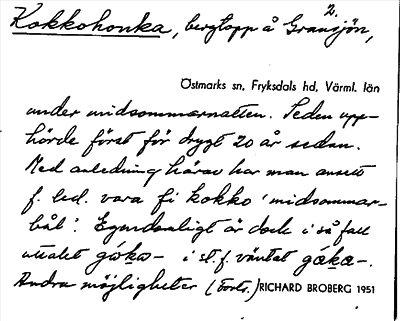 2.
Kokkohonka, bergtopp å Gransjön,
Östmarks sn, Fryksdals hd, Värml. län
under midsommarnatten. Seden upp-
hörde först för drygt 20 år sedan.
Med anledning härav har man ansett
f. led. vara fi kokko 'midsommar-
bål'. Egendomligt är dock i så fall
uttalet góka- i st. f. väntat gåka-.
Andra möjligheter (forts.) RICHARD BROBERG 1951